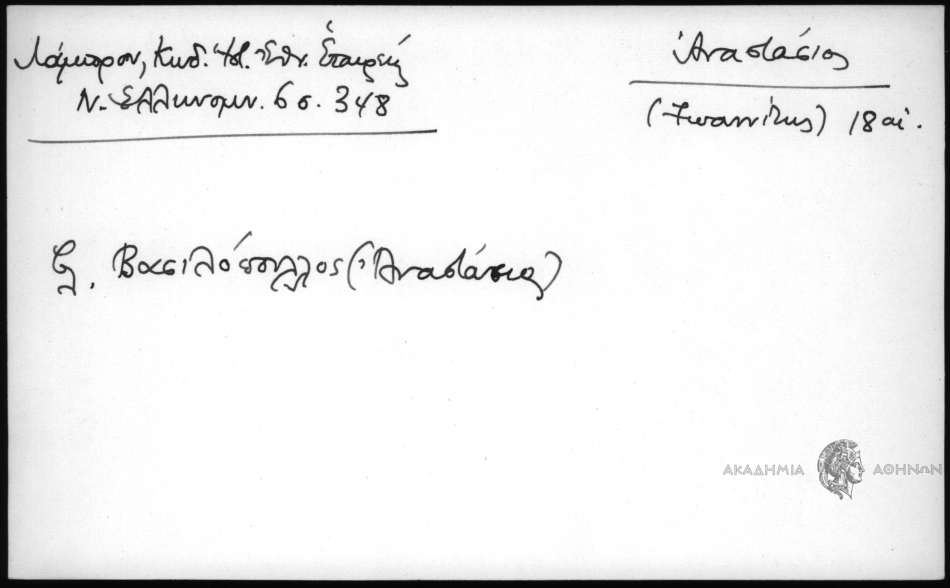 Λάμπρου, Κωδ. Ἱστ. Ἐθν. Ἑταιρείας
Ν. Ἑλληνομν. 6 σ. 348
Ἀναστάσιος
(Ἰωαννίτης) 18 αἰ.
Βασιλόπουλλος (Ἀναστάσιος)
ΑΚΑΔΗΜΙΑ ΑΘΗΝΩΝ